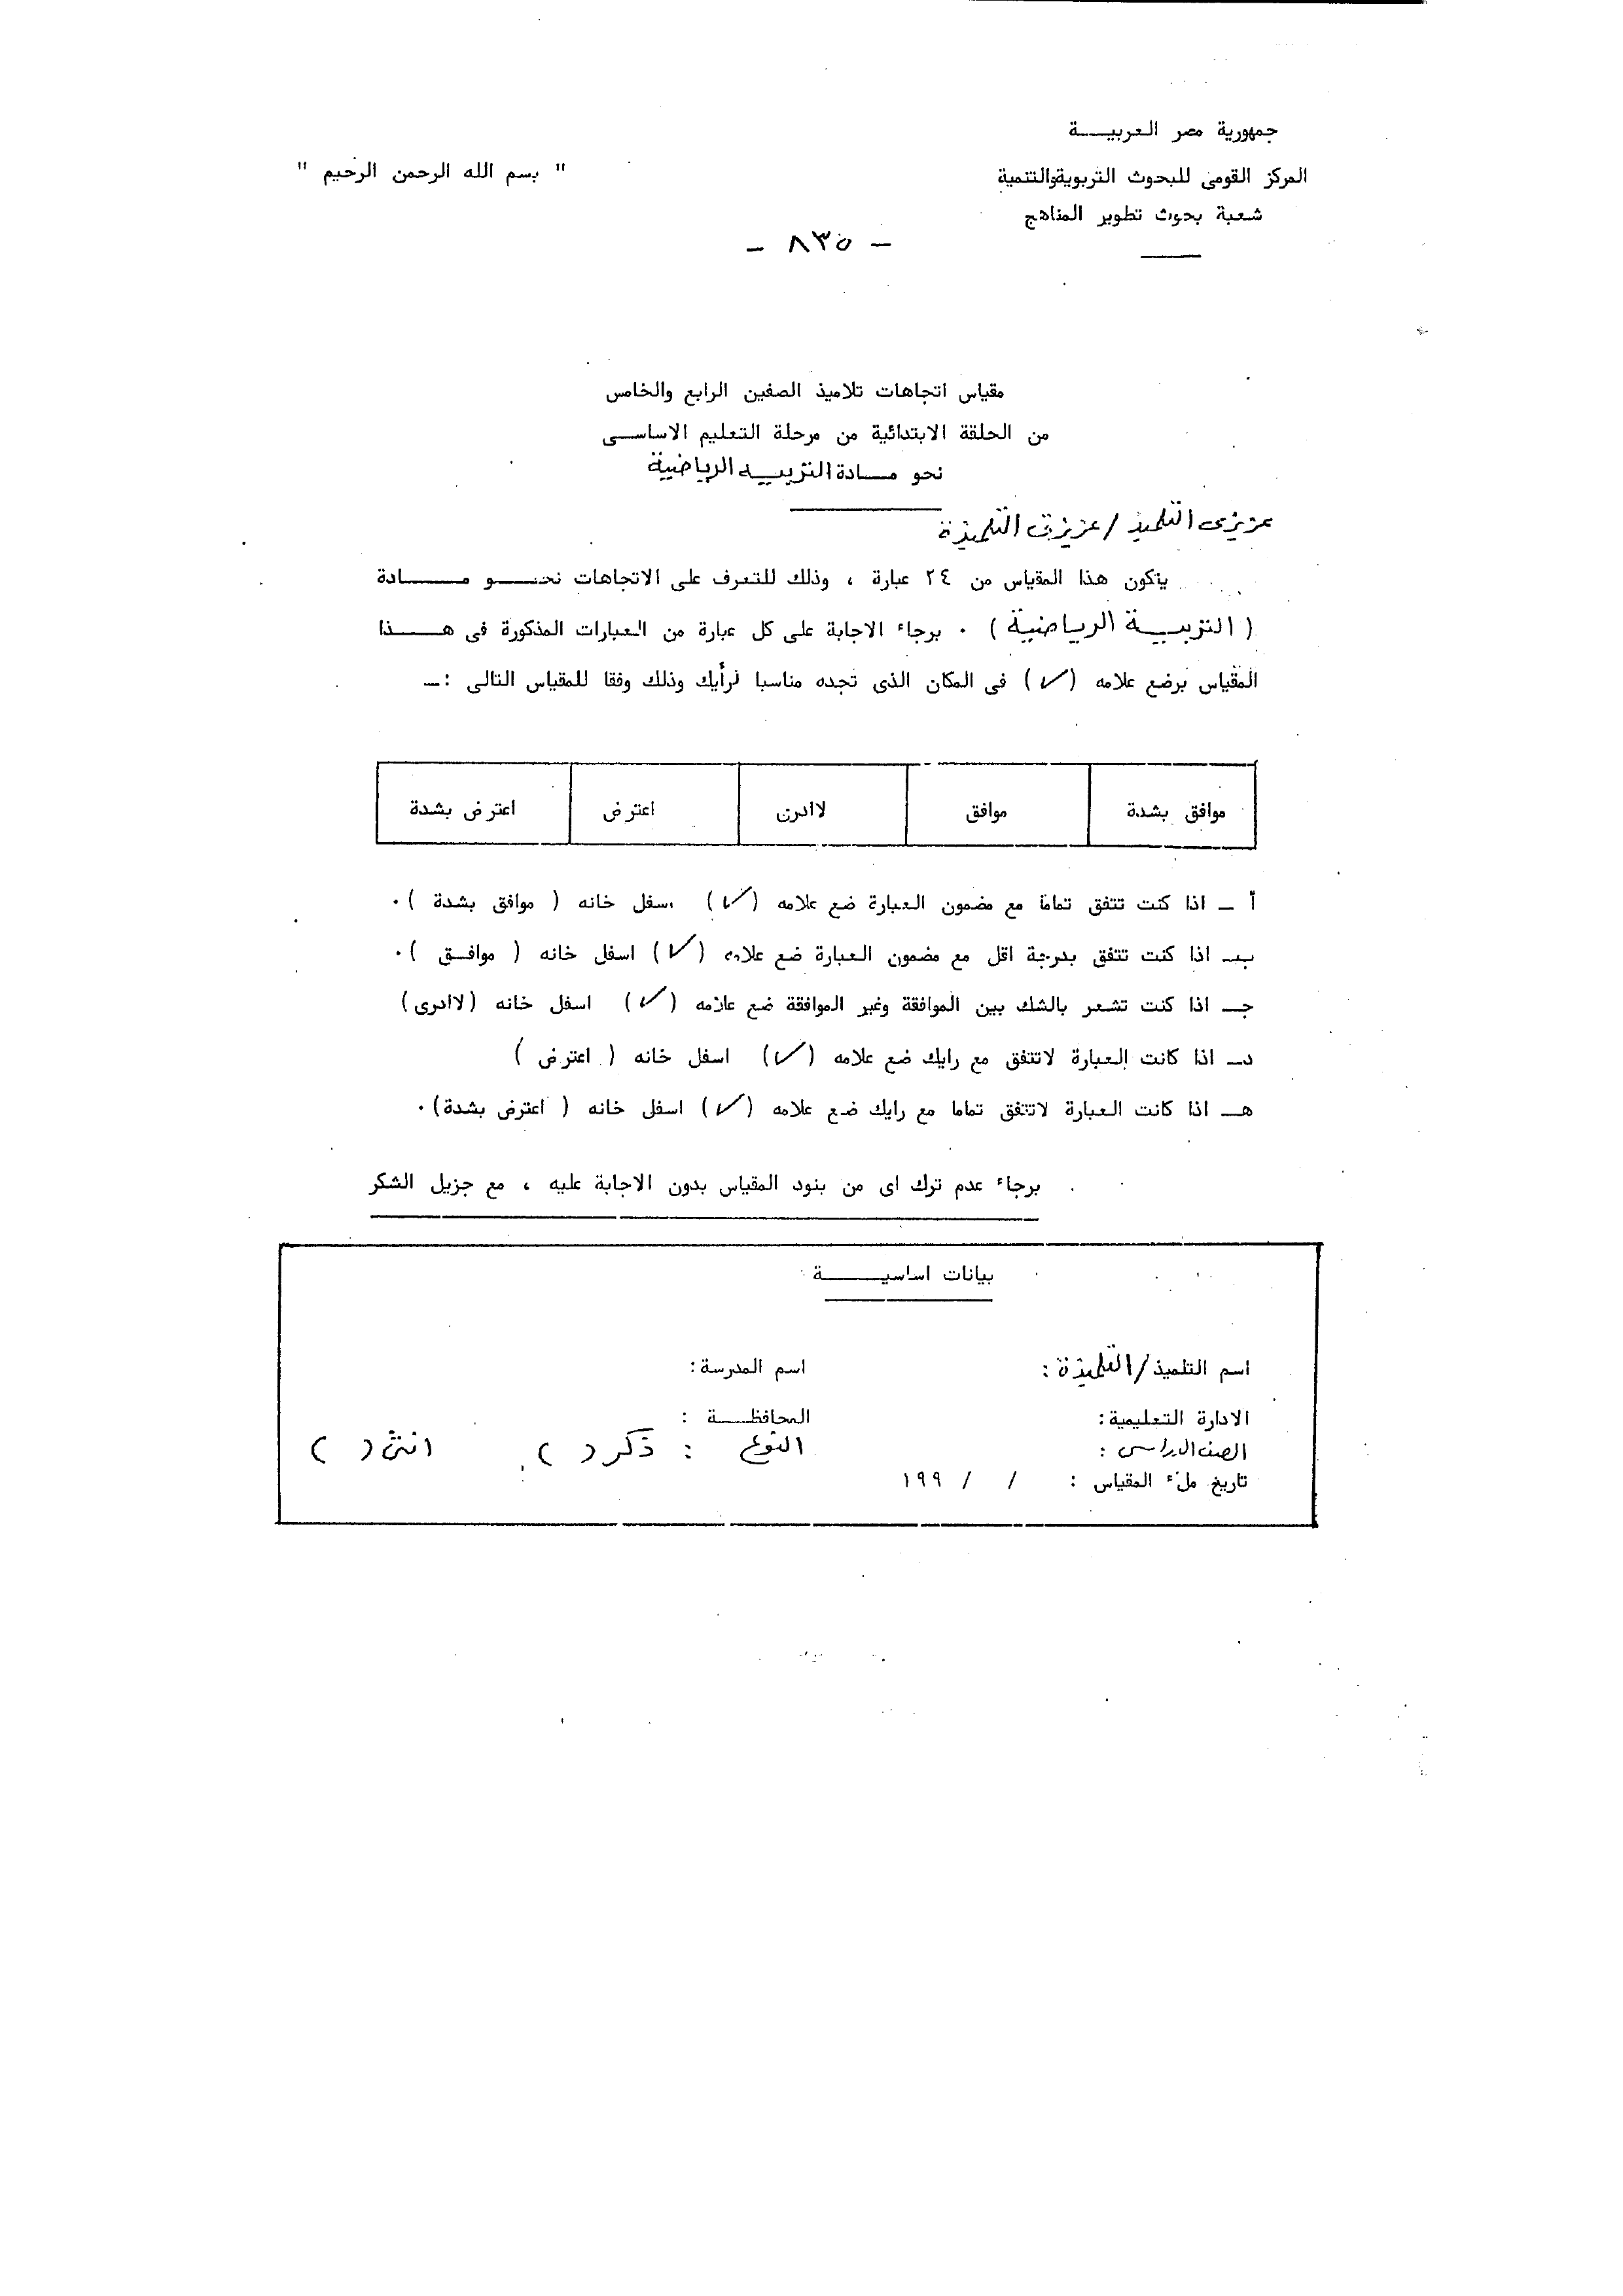 جمهورية مصر العربيـــــة
المركز القومى للبحوث التربوية والتنمية
" بسم الله الرحمن الرحيم "
شعبة بحوث تطوير المناهج
- ٨٣٥ -
مقياس اتجاهات تلاميذ الصفين الرابع والخامس
من الحلقة الابتدائية من مرحلة التعليم الاساســى
نحو مـــادة التربيـــه الرياضية
عزيزى التلميذ / عزيزتى التلميذة
يتكون هذا المقياس من ٢٤ عبارة ، وذلك للتعرف على الاتجاهات نحــــو مـــــــادة
( التربيـــة الرياضية ) ٠ برجاء الاجابة على كل عبارة من العبارات المذكورة فى هـــــذا
المقياس بوضع علامه (✓) فى المكان الذى تجده مناسبا لرأيك وذلك وفقا للمقياس التالى :ـ
موافق بشدة موافق لاادرى اعترض اعترض بشدة
أ ـ اذا كنت تتفق تماما مع مضمون العبارة ضع علامه (✓) اسفل خانه ( موافق بشدة ) ٠
بـ اذا كنت تتفق بدرجة اقل مع مضمون العبارة ضع علامه (✓) اسفل خانه ( موافــق ) ٠
جـ اذا كنت تشعر بالشك بين الموافقة وغير الموافقة ضع علامه (✓) اسفل خانه (لاادرى)
دـ اذا كانت العبارة لاتتفق مع رايك ضع علامه (✓) اسفل خانه ( اعترض )
هـ اذا كانت العبارة لاتتفق تماما مع رايك ضع علامه (✓) اسفل خانه ( اعترض بشدة) ٠
برجاء عدم ترك اى من بنود المقياس بدون الاجابة عليه ، مع جزيل الشكر
بيانات اساسيـــــــة
اسم التلميذ / التلميذة : اسم المدرسة :
الادارة التعليمية : المحافظـــة :
الصف الدراسى : النوع : ذكر ( ) انثى ( )
تاريخ ملء المقياس : / / ١٩٩